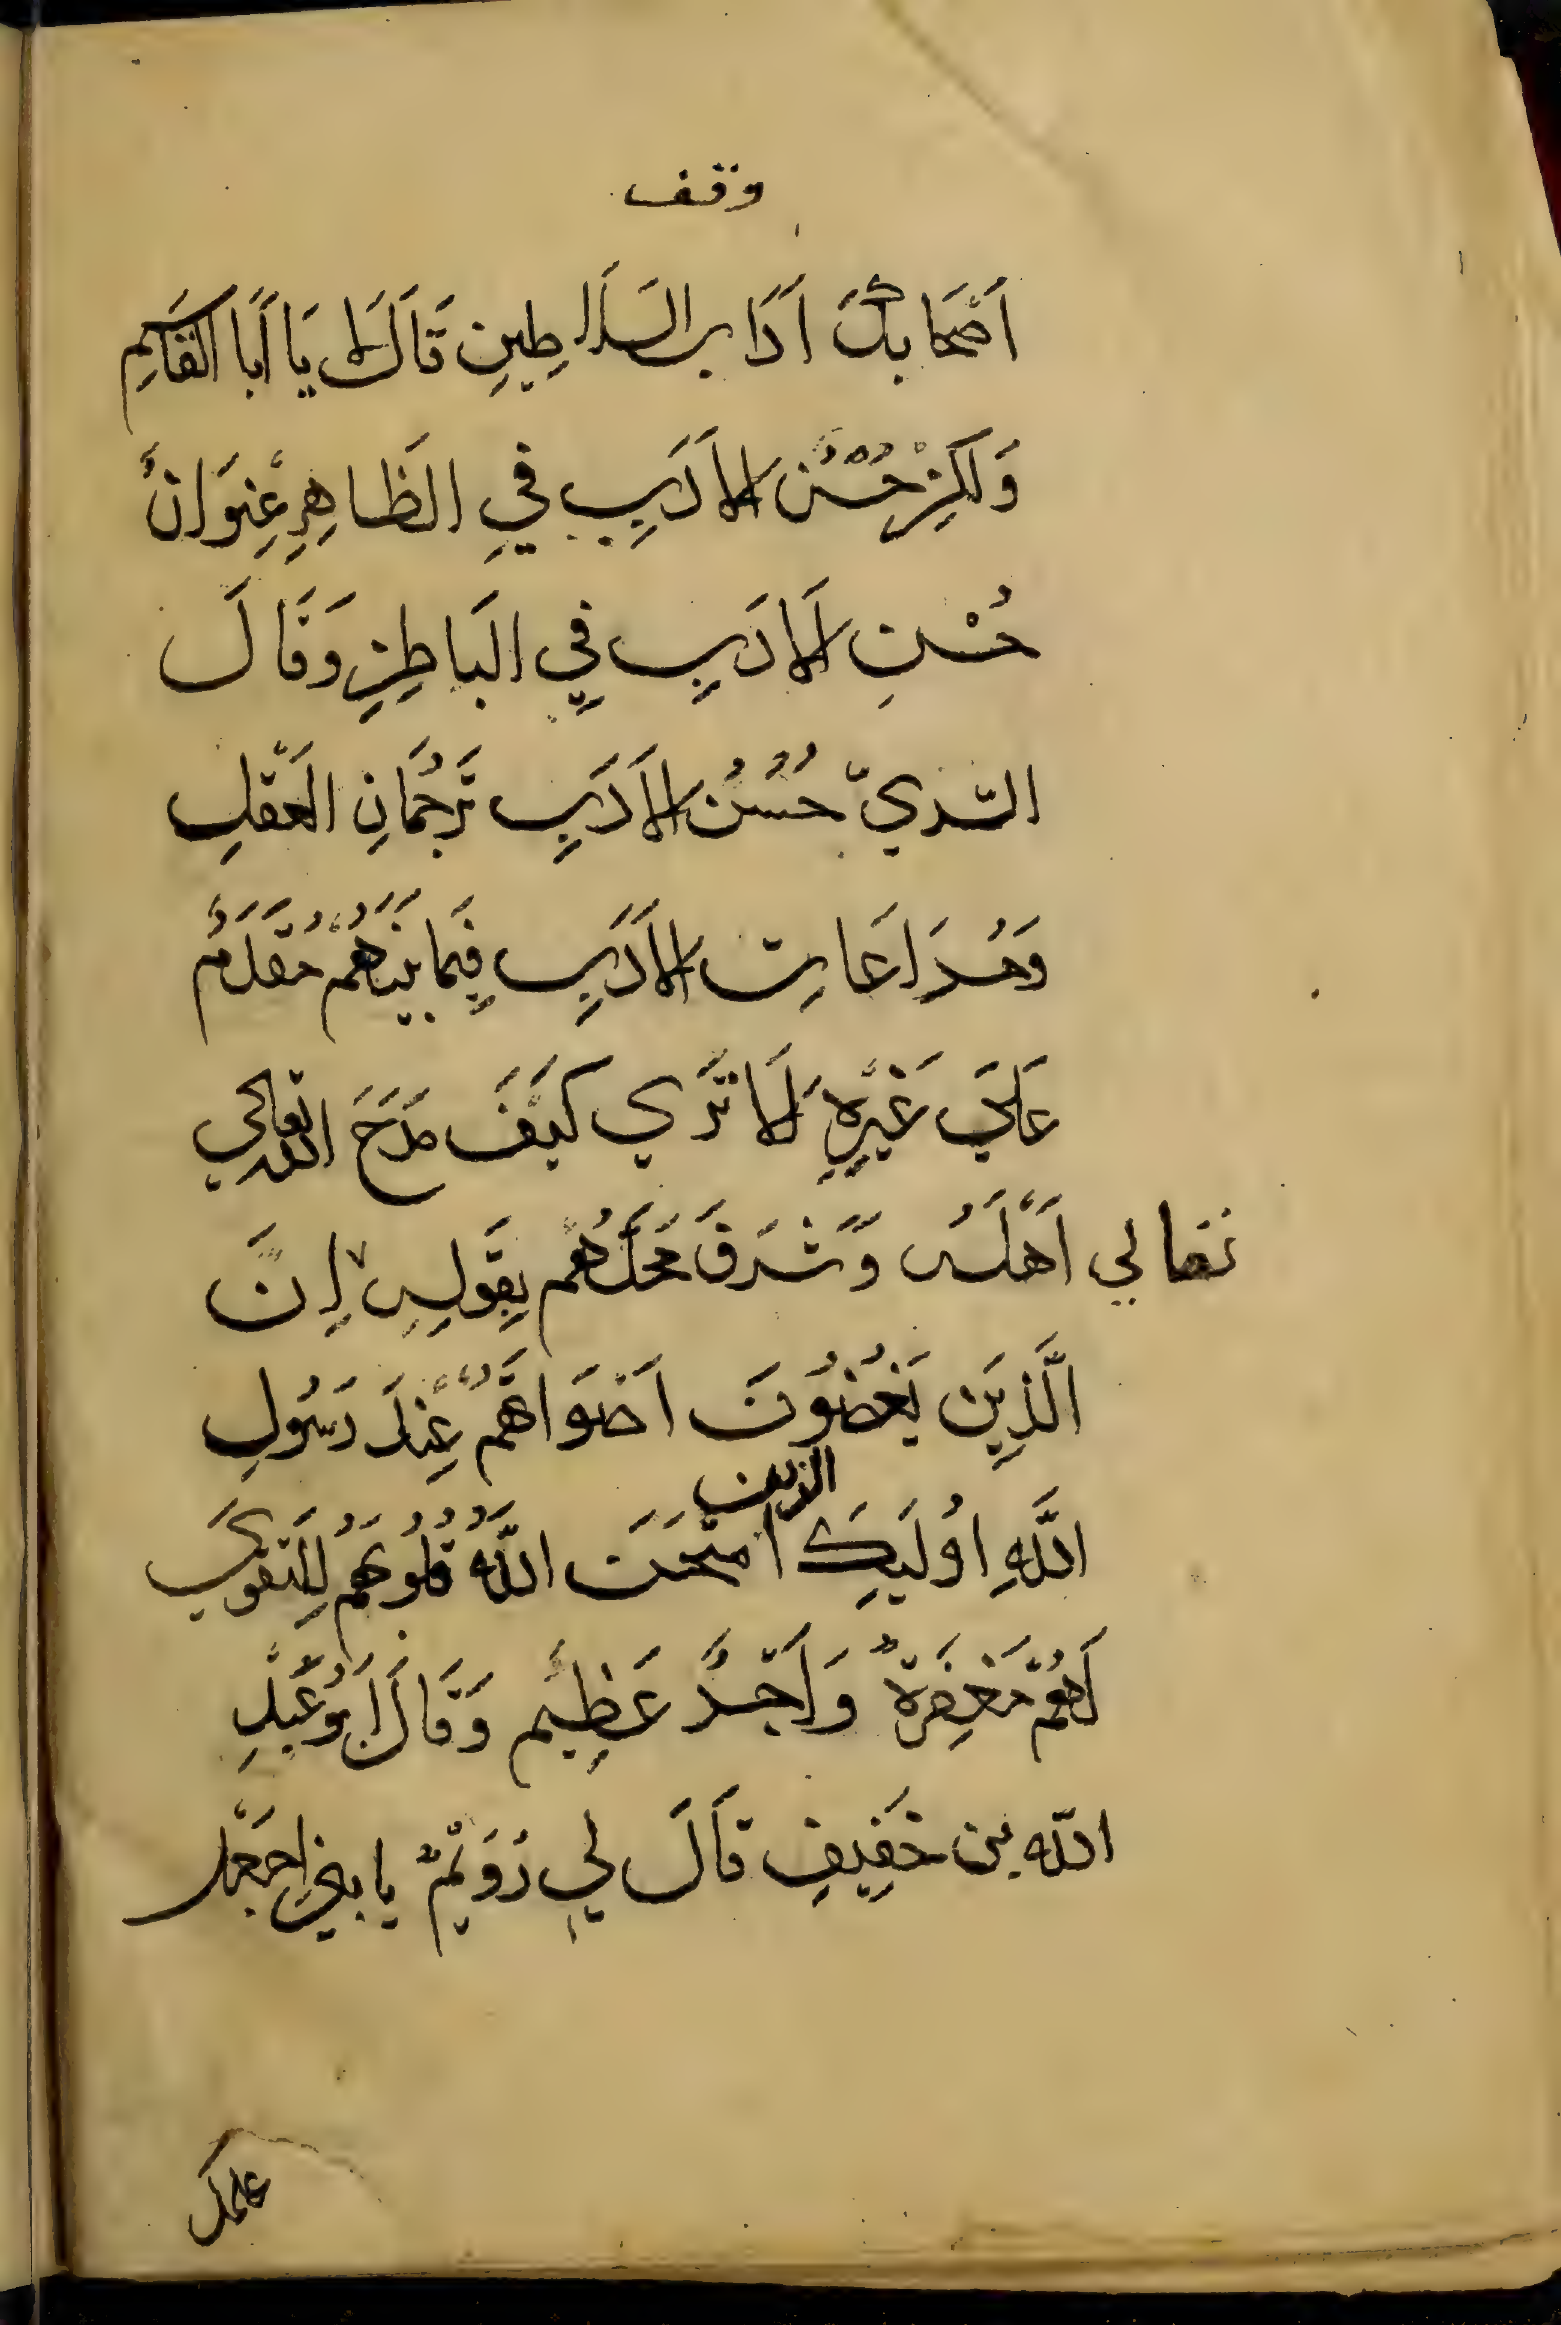 وقف
اَصْحَابَكَ اَدَابَ السَلَاطِينِ قَالَ لَا يَا اَبَا القَاسِمِ
وَلَكِنْ حُسْنُ الْاَدَبِ فِي الظَاهِرِ عِنْوَانُ
حُسْنِ الْاَدَبِ فِي البَاطِنِ وَقَالَ
السَّرِيّ حُسْنُ الْاَدَبِ تَرجُمَانِ العَقْلِ
وَمُرَاعَات الْاَدَبِ فِيَما بَيْنَهُمْ مُقَدَّمُ
عَلَي غَيْرِهِ اَلَا تَرَي كَيْفَ مَدَحَ الله تعالي
تعالي اَهْلَهُ وَشَرَفَ مَحَلَّهُم بِقَولِهِ اِنَّ
الَّذِيَن يَغُضُوُنَ اَصْوَاتَهُمْ عِنْدَ رَسُولِ
اللَّهِ اوُلَئِكَ الذين امْتَحَنَ اللَّهُ قُلُوبَهُمْ لِلتَقوَي
لَهُمْ مَغفِرَةٌ وَاَجْرٌ عَظِيْم وَقَالَ اَبُو عَبْدِ
الله بن خَفِيفِ قَالَ لِي رُوَيْمٌ يا بني اجعَل
علمك